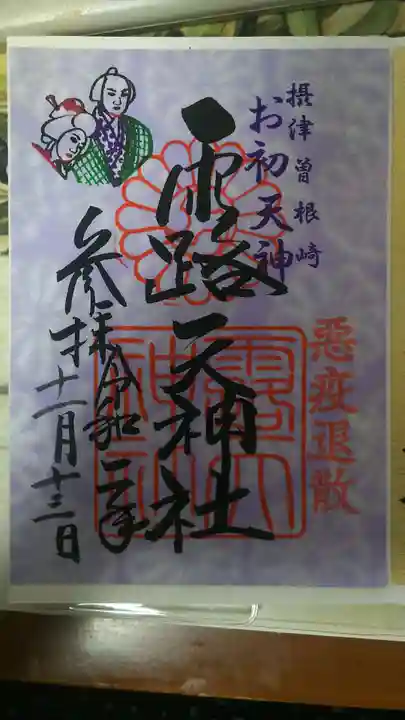 摂津曽根崎
お初天神
悪疫退散
露天神社
参拝令和二年
十一月十三日